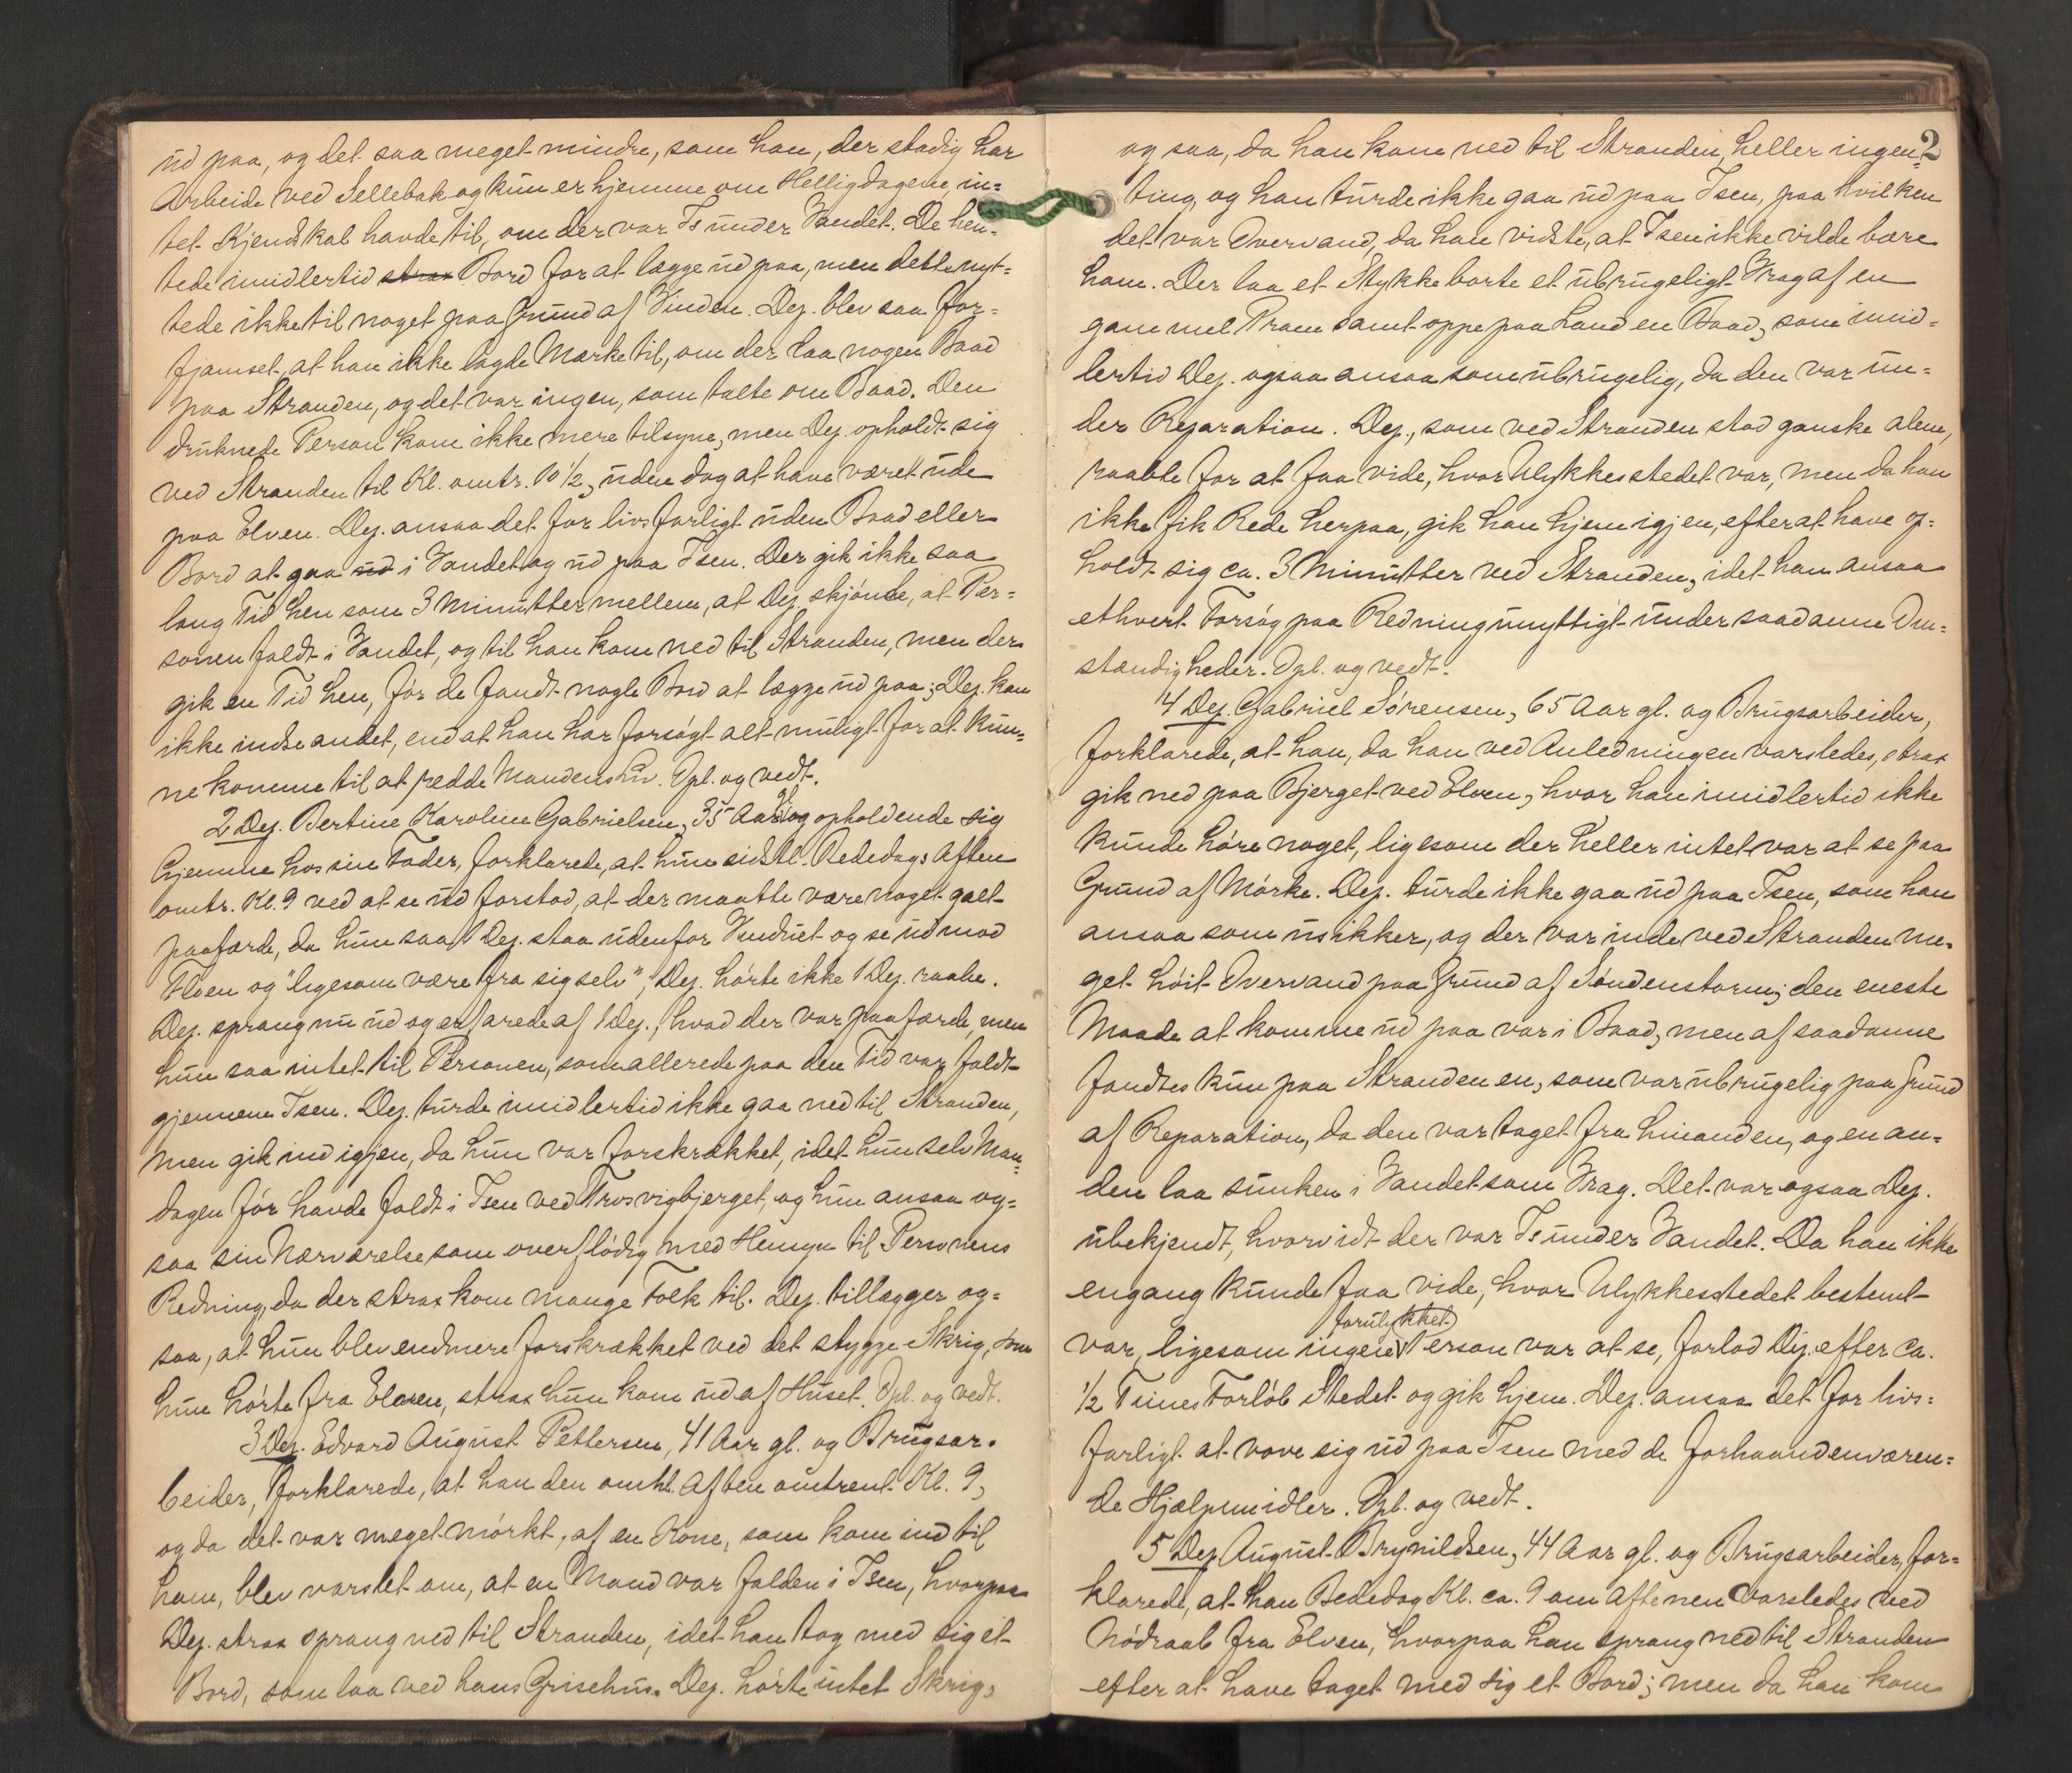 ud paa, og det saa meget mindre, som han, der stadig har
Arbeide ved Sellebak og kun er hjemme om Helligdagene, in=
tet Kjendskab havde til, om der var Is under Vandet. De hen=
tede imidlertid strax Bord for at lægge ud paa, men dette nyt=
tede ikke til noget paa Grund af Vinden. Dep. blev saa for=
fjamset, at han ikke lagde Mærke til, om der laa nogen Baad
paa Stranden, og det var ingen, som talte om Baad. Den
druknede Person kom ikke mere tilsyne, men Dep. opholdt sig
ved Stranden til Kl. omtr. 10 1/2, uden dog at have været ude
paa Elven. Dep. ansaa det for livsfarligt uden Baad eller
Bord at gaa ud i Vandet og ud paa Isen. Der gik ikke saa
lang Tid hen som 3 Minutter mellem, at Dep. skjønte, at Per=
sonen faldt i Vandet, og til han kom ned til Stranden, men der
gik en Tid hen, før de fandt nogle Bord at lægge ud paa; Dep. kan
ikke indse andet, end at han har forsøgt alt muligt for at kun=
ne komme til at redde Mandens Liv. Opl. og vedt.
2 Dep. Bertine Karoline Gabrielsen, 35 Aar gl. og opholdende sig
hjemme hos sin Fader, forklarede, at hun sidstl. Bededags Aften
omtr. Kl. 9 ved at se ud forstod, at der maatte være noget galt
paafærde, da hun saa 1 Dep. staa udenfor Vinduet og se ud mod
Elven og "ligesom være fra sig selv"; Dep. hørte ikke 1 Dep. raabe.
Dep. sprang nu ud og erfarede af 1 Dep., hvad der var paafærde, men
hun saa intet til Personen, som allerede paa den Tid var faldt
gjennem Isen. Dep. turde imidlertid ikke gaa ned til Stranden,
men gik ind igjen, da hun var forskrækket, idet hun selv Man=
dagen før havde faldt i Isen ved Trosvigbjerget, og hun ansaa og=
saa sin Nærværelse som overflødig med Hensyn til Personens
Redning, da der strax kom mange Folk til. Dep. tillægger og=
saa, at hun blev endmere forskrækket ved det stygge Skrig, som
hun hørte fra Elven, strax hun kom ud af Huset. Opl. og vedt.
3 Dep. Edvard August Pettersen, 41 Aar gl. og Brugsar=
beider, forklarede, at han den omhl. Aften omtrent Kl. 9,
og da det var meget mørkt, af en Kone, som kom ind til
ham, blev varslet om, at en Mand var falden i Isen, hvorpaa
Dep. strax sprang ned til Stranden, idet han tog med sig et
Bord, som laa ved hans Grisehus. Dep. hørte intet Skrig,
2
og saa, da han kom ned til Stranden, heller ingen=
ting, og han turde ikke gaa ud paa Isen, paa hvilken
det var Overvand, da han vidste, at Isen ikke vilde bære
ham. Der laa et Stykke borte et ubrugeligt Vrag af en
gammel Pram samt oppe paa Land en Baad, som imid=
lertid Dep. ogsaa ansaa som ubrugelig, da den var un=
der Reparation. Dep., som ved Stranden stod ganske alene,
raabte for at faa vide, hvor Ulykkesstedet var, men da han
ikke fik Rede herpaa, gik han hjem igjen, efter at have op=
holdt sig ca. 3 Minutter ved Stranden, idet han ansaa
ethvert Forsøg paa Redning unyttigt under saadanne Om=
stændigheder. Opl. og vedt.
4 Dep. Gabriel Sørensen, 65 Aar gl. og Brugsarbeider,
forklarede, at han, da han ved Anledningen varsledes, strax
gik ned paa Bjerget ved Elven, hvor han imidlertid ikke
kunde høre noget, ligesom der heller intet var at se paa
Grund af Mørke. Dep. turde ikke gaa ud paa Isen, som han
ansaa som usikker, og der var inde ved Stranden me=
get høit Overvand paa Grund af Søndenstorm; den eneste
Maade at komme ud paa var i Baad, men af saadanne
fandtes kun paa Stranden en, som var ubrugelig paa Grund
af Reparation, da den var taget fra hinanden, og en an=
den laa sunken i Vandet som Vrag. Det var ogsaa Dep.
ubekjendt, hvorvidt der var Is under Vandet. Da han ikke
engang kunde faa vide, hvor Ulykkesstedet bestemt
var, ligesom ingen forulykket Person var at se, forlod Dep. efter ca.
1/2 Times Forløb Stedet og gik hjem. Dep. ansaa det for livs=
farligt at vove sig ud paa Isen med de forhaandenværen=
de Hjælpemidler. Opl. og vedt.
5 Dep. August Brynildsen, 44 Aar gl. og Brugsarbeider, for=
klarede, at han Bededag Kl. ca. 9 om Aftenen varsledes ved
Nødraab fra Elven, hvorpaa han sprang ned til Stranden
efter at have taget med sig et Bord; men da han kom